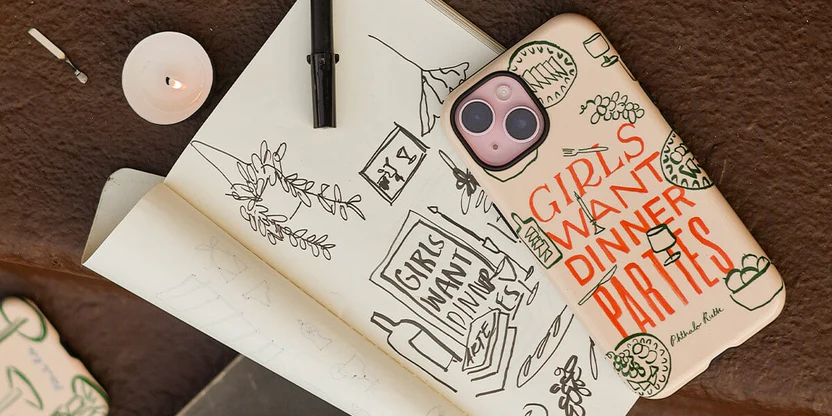 GIRLS
WANT
DINNER
PARTIES
Phthalo Ruth
GIRLS
WANT
DINNER